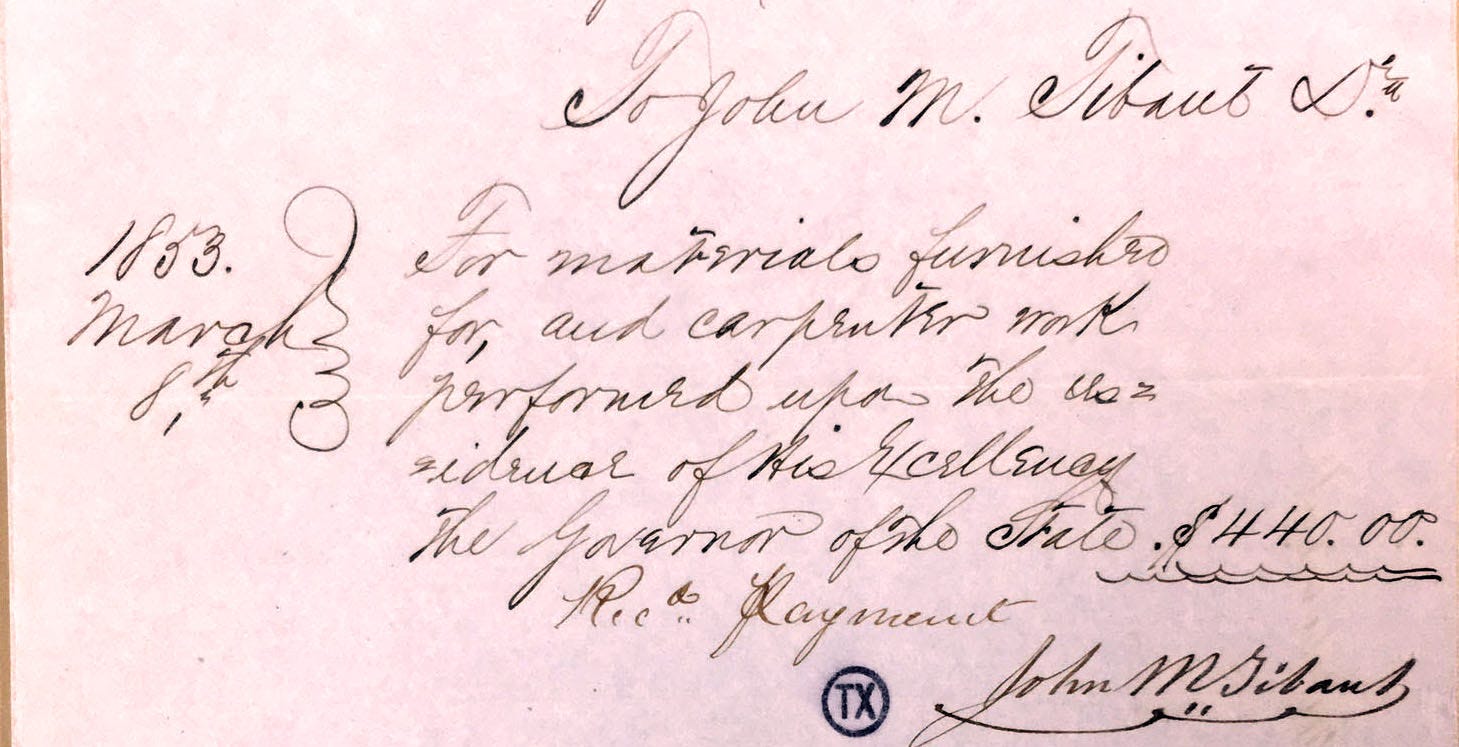 To John M. Tibaut Dr.
1853.
March
8th
For materials furnished
for, and carpenter work
performed upon the res=
=idence of His Excellency
the Governor of the State. $440.00.
Recd. Payment
John M Tibaut
TX